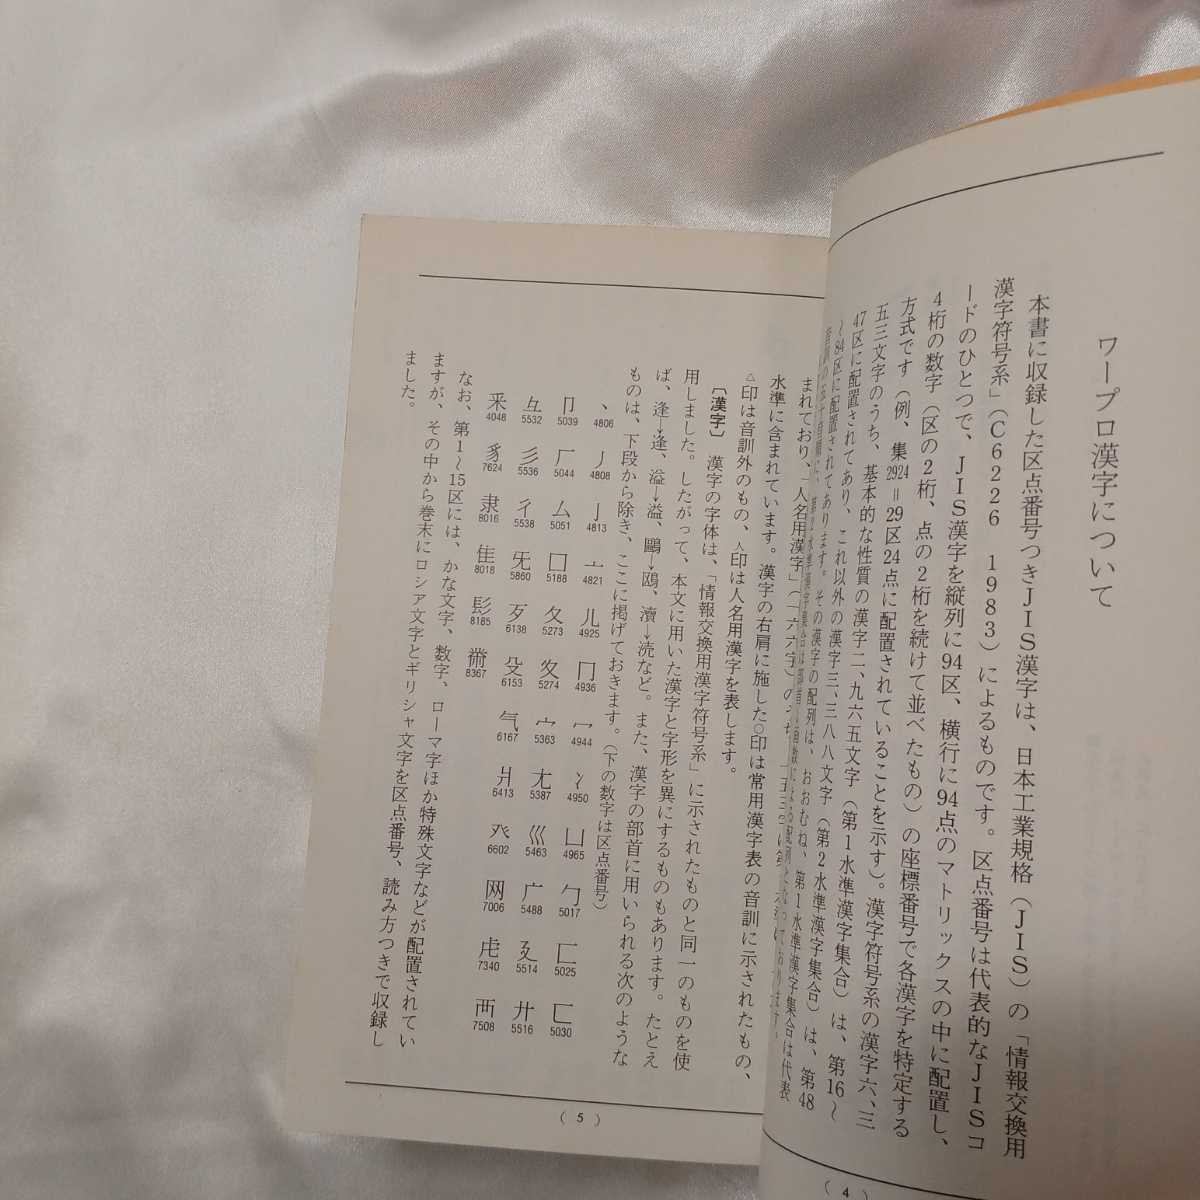 ワープロ漢字について
本書に収録した区点番号つきJIS漢字は、日本工業規格（JIS）の「情報交換用
漢字符号系」（C6226 1983）によるものです。区点番号は代表的なJISコ
ードのひとつで、JIS漢字を縦列に94区、横行に94点のマトリックスの中に配置し、
4桁の数字（区の2桁、点の2桁を続けて並べたもの）の座標番号で各漢字を特定する
方式です（例、集2924＝29区24点に配置されていることを示す）。漢字符号系の漢字六、三
五三文字のうち、基本的な性質の漢字二、九六五文字（第1水準漢字集合）は、第16〜
47区に配置されてあり、これ以外の漢字三、三八八文字（第2水準漢字集合）は、第48
〜84区に配置されてあります。その漢字の配列は、おおむね、第1水準漢字集合は代表
（4）
まれており、「人名用漢字」（一六六字）のうち
水準に含まれています。漢字の右肩に施した○印は常用漢字表の音訓に示されたもの、
△印は音訓外のもの、人印は人名用漢字を表します。
〔漢字〕 漢字の字体は、「情報交換用漢字符号系」に示されたものと同一のものを使
用しました。したがって、本文に用いた漢字と字形を異にするものもあります。たとえ
ば、逢→逢、溢→溢、鷗→鴎、瀆→涜など。また、漢字の部首に用いられる次のような
ものは、下段から除き、ここに掲げておきます。（下の数字は区点番号）
丶4806 丿4808 亅4813 亠4821 儿4925 冂4936 冖4944 冫4950 凵4965 勹5017 匚5025 匸5030
卩5039 厂5044 厶5051 囗5188 夂5273 夊5274 宀5363 尢5387 巛5463 广5488 廴5514 廾5516
彑5532 彡5536 彳5538 旡5860 歹6138 殳6153 气6167 爿6413 癶6602 网7006 虍7340 襾7508
釆4048 豸7624 隶8016 隹8018 髟8185 黹8367
なお、第1〜15区には、かな文字、数字、ローマ字ほか特殊文字などが配置されてい
ますが、その中から巻末にロシア文字とギリシャ文字を区点番号、読み方つきで収録し
ました。
（5）